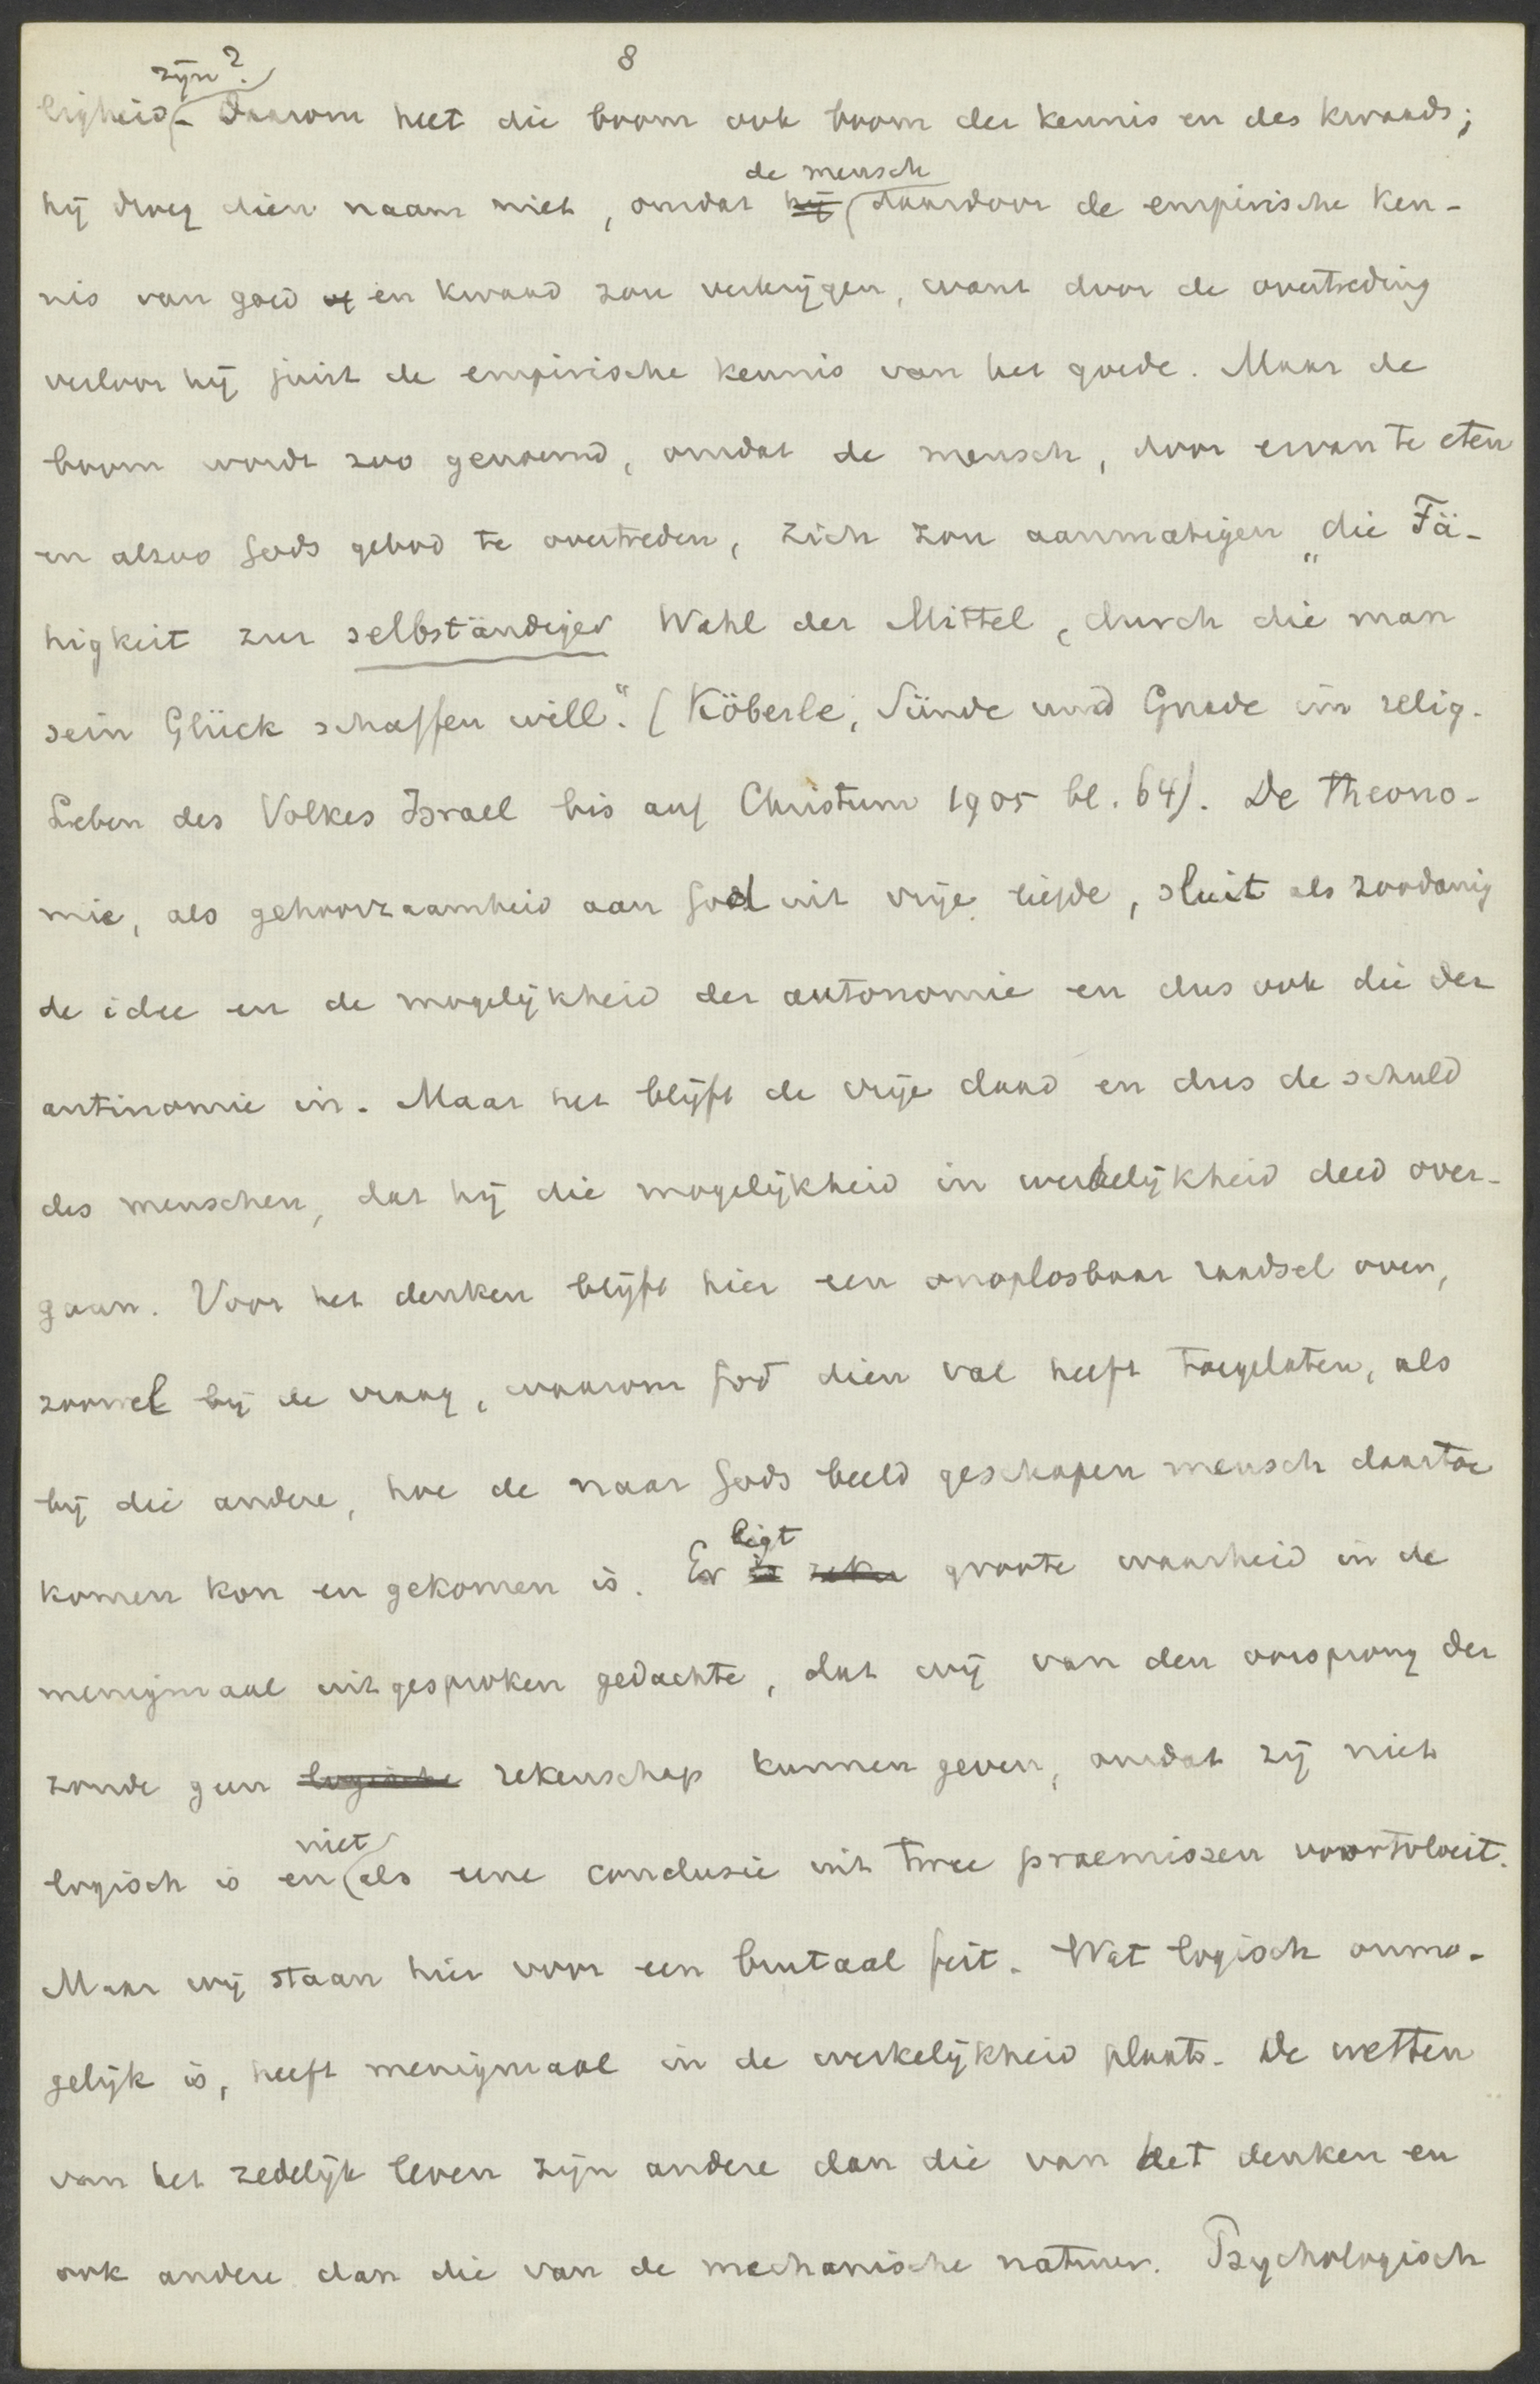 8
ligheid zijn? - Daarom heet die boom ook boom der kennis en des kwaads;
hij droeg dien naam niet, omdat hij de mensch daardoor de empirische ken-
nis van goed of en kwaad zou verkrijgen, want door de overtreding
verloor hij juist de empirische kennis van het goede. Maar de
boom wordt zoo genoemd, omdat de mensch, door ervan te eten
en alzoo Gods gebod te overtreden, zich zou aanmatigen „die Fä-
higkeit zur selbständiger Wahl der Mittel, durch die man
sein Glück schaffen will." (Köberle, Sünde und Gnade im relig.
Leben des Volkes Israel bis auf Christum 1905 bl. 64). De theono-
mie, als gehoorzaamheid aan God uit vrije liefde, sluit als zoodanig
de idee en de mogelijkheid der autonomie en dus ook die der
antinomie in. Maar het blijft de vrije daad en dus de schuld
des menschen, dat hij die mogelijkheid in werkelijkheid deed over-
gaan. Voor het denken blijft hier een onoplosbaar raadsel over,
zoowel bij de vraag, waarom God dien val heeft toegelaten, als
bij die andere, hoe de naar Gods beeld geschapen mensch daartoe
komen kon en gekomen is. Er is zeker ligt groote waarheid in de
menigmaal uitgesproken gedachte, dat wij van den oorsprong der
zonde geen logische rekenschap kunnen geven, omdat zij niet
logisch is en niet als eene conclusie uit twee praemissen voortvloeit.
Maar wij staan hier voor een brutaal feit. Wat logisch onmo-
gelijk is, heeft menigmaal in de werkelijkheid plaats. De wetten
van het zedelijk leven zijn andere dan die van het denken en
ook andere dan die van de mechanische natuur. Psychologisch